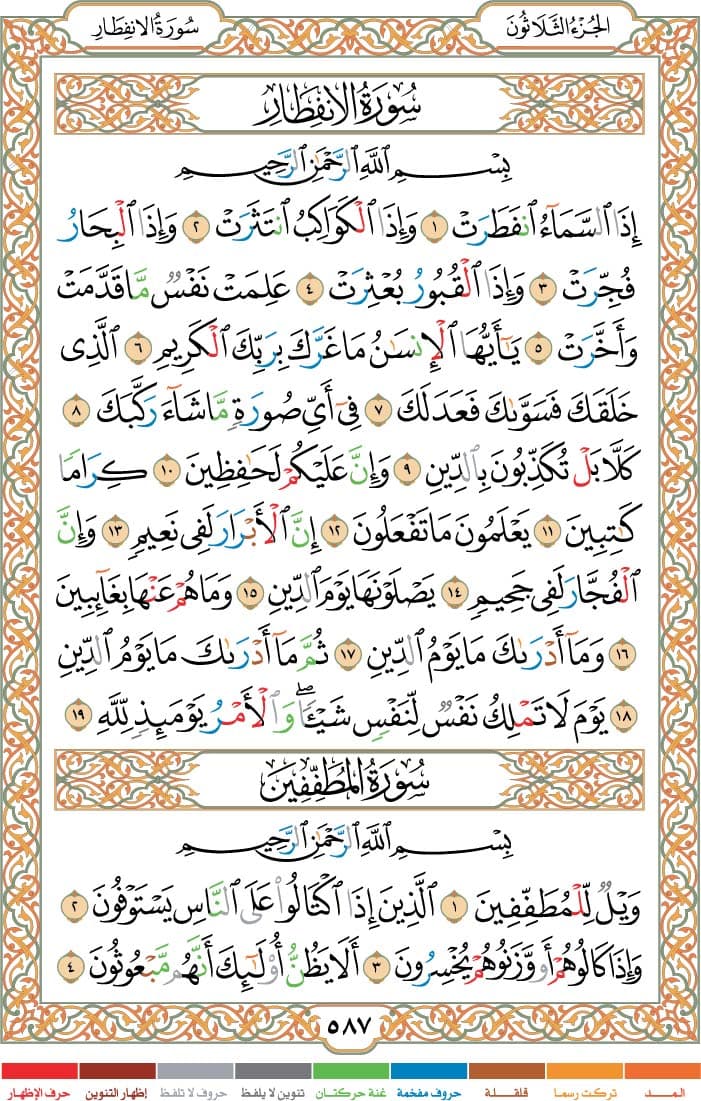 الجُزْءُ الثَّلَاثُونَ
سُورَةُ الانفِطَارِ
سُورَةُ الانفِطَارِ
بِسْمِ ٱللَّهِ ٱلرَّحْمَٰنِ ٱلرَّحِيمِ
إِذَا ٱلسَّمَآءُ ٱنفَطَرَتْ ١ وَإِذَا ٱلْكَوَاكِبُ ٱنتَثَرَتْ ٢ وَإِذَا ٱلْبِحَارُ
فُجِّرَتْ ٣ وَإِذَا ٱلْقُبُورُ بُعْثِرَتْ ٤ عَلِمَتْ نَفْسٌ مَّا قَدَّمَتْ
وَأَخَّرَتْ ٥ يَٰٓأَيُّهَا ٱلْإِنسَٰنُ مَا غَرَّكَ بِرَبِّكَ ٱلْكَرِيمِ ٦ ٱلَّذِى
خَلَقَكَ فَسَوَّىٰكَ فَعَدَلَكَ ٧ فِىٓ أَىِّ صُورَةٍ مَّا شَآءَ رَكَّبَكَ ٨
كَلَّا بَلْ تُكَذِّبُونَ بِٱلدِّينِ ٩ وَإِنَّ عَلَيْكُمْ لَحَٰفِظِينَ ١٠ كِرَامًا
كَٰتِبِينَ ١١ يَعْلَمُونَ مَا تَفْعَلُونَ ١٢ إِنَّ ٱلْأَبْرَارَ لَفِى نَعِيمٍ ١٣ وَإِنَّ
ٱلْفُجَّارَ لَفِى جَحِيمٍ ١٤ يَصْلَوْنَهَا يَوْمَ ٱلدِّينِ ١٥ وَمَا هُمْ عَنْهَا بِغَآئِبِينَ
١٦ وَمَآ أَدْرَىٰكَ مَا يَوْمُ ٱلدِّينِ ١٧ ثُمَّ مَآ أَدْرَىٰكَ مَا يَوْمُ ٱلدِّينِ
١٨ يَوْمَ لَا تَمْلِكُ نَفْسٌ لِّنَفْسٍ شَيْـًٔا ۖ وَٱلْأَمْرُ يَوْمَئِذٍ لِّلَّهِ ١٩
سُورَةُ المُطَفِّفِينَ
بِسْمِ ٱللَّهِ ٱلرَّحْمَٰنِ ٱلرَّحِيمِ
وَيْلٌ لِّلْمُطَفِّفِينَ ١ ٱلَّذِينَ إِذَا ٱكْتَالُوا۟ عَلَى ٱلنَّاسِ يَسْتَوْفُونَ ٢
وَإِذَا كَالُوهُمْ أَو وَّزَنُوهُمْ يُخْسِرُونَ ٣ أَلَا يَظُنُّ أُو۟لَٰٓئِكَ أَنَّهُم مَّبْعُوثُونَ ٤
٥٨٧
المـــد تركت رسما قلقـلة حروف مفخمة غنة حركتان تنوين لا يلفظ حروف لا تلفظ إظهار التنوين حرف الإظهار